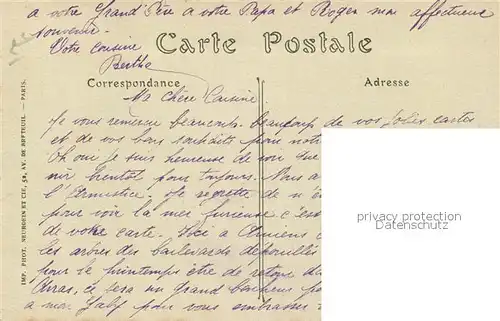 a votre Grand Père a votre Papa et Roger mon affectueux
souvenir.
Votre cousine
Berthe
Carte Postale
Correspondance
Adresse
Ma Chère Cousine
Je vous remercie beaucoup, beaucoup de vos jolies cartes
et de vos bons souhaits pour notre
Oh oui je suis heureuse de voir que
nir bientôt pour toujours. Nous
l'Armistice. Je regrette de n'
pour voir la mer furieuse c'est
de votre carte. Ici a Amiens
les arbres des boulevards dépouillés
pour le printemps être de retour
Arras, ce sera un grand bonheur
a moi. pour vous embrasser
IMP. PHOT. NEURDEIN ET CIE, 52, AV. DE BRETEUIL. — PARIS.
privacy protection
privacy protection